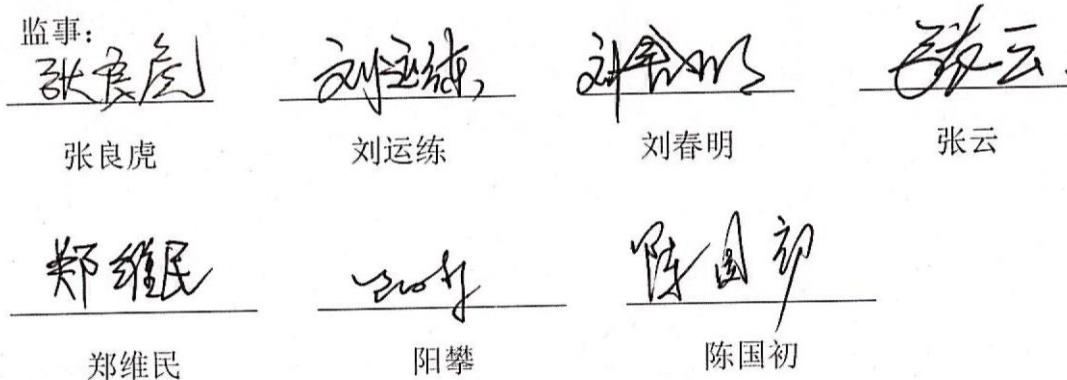 监事：
张良虎 刘运练 刘春明 张云
张良虎 刘运练 刘春明 张云
郑维民 阳攀 陈国初
郑维民 阳攀 陈国初